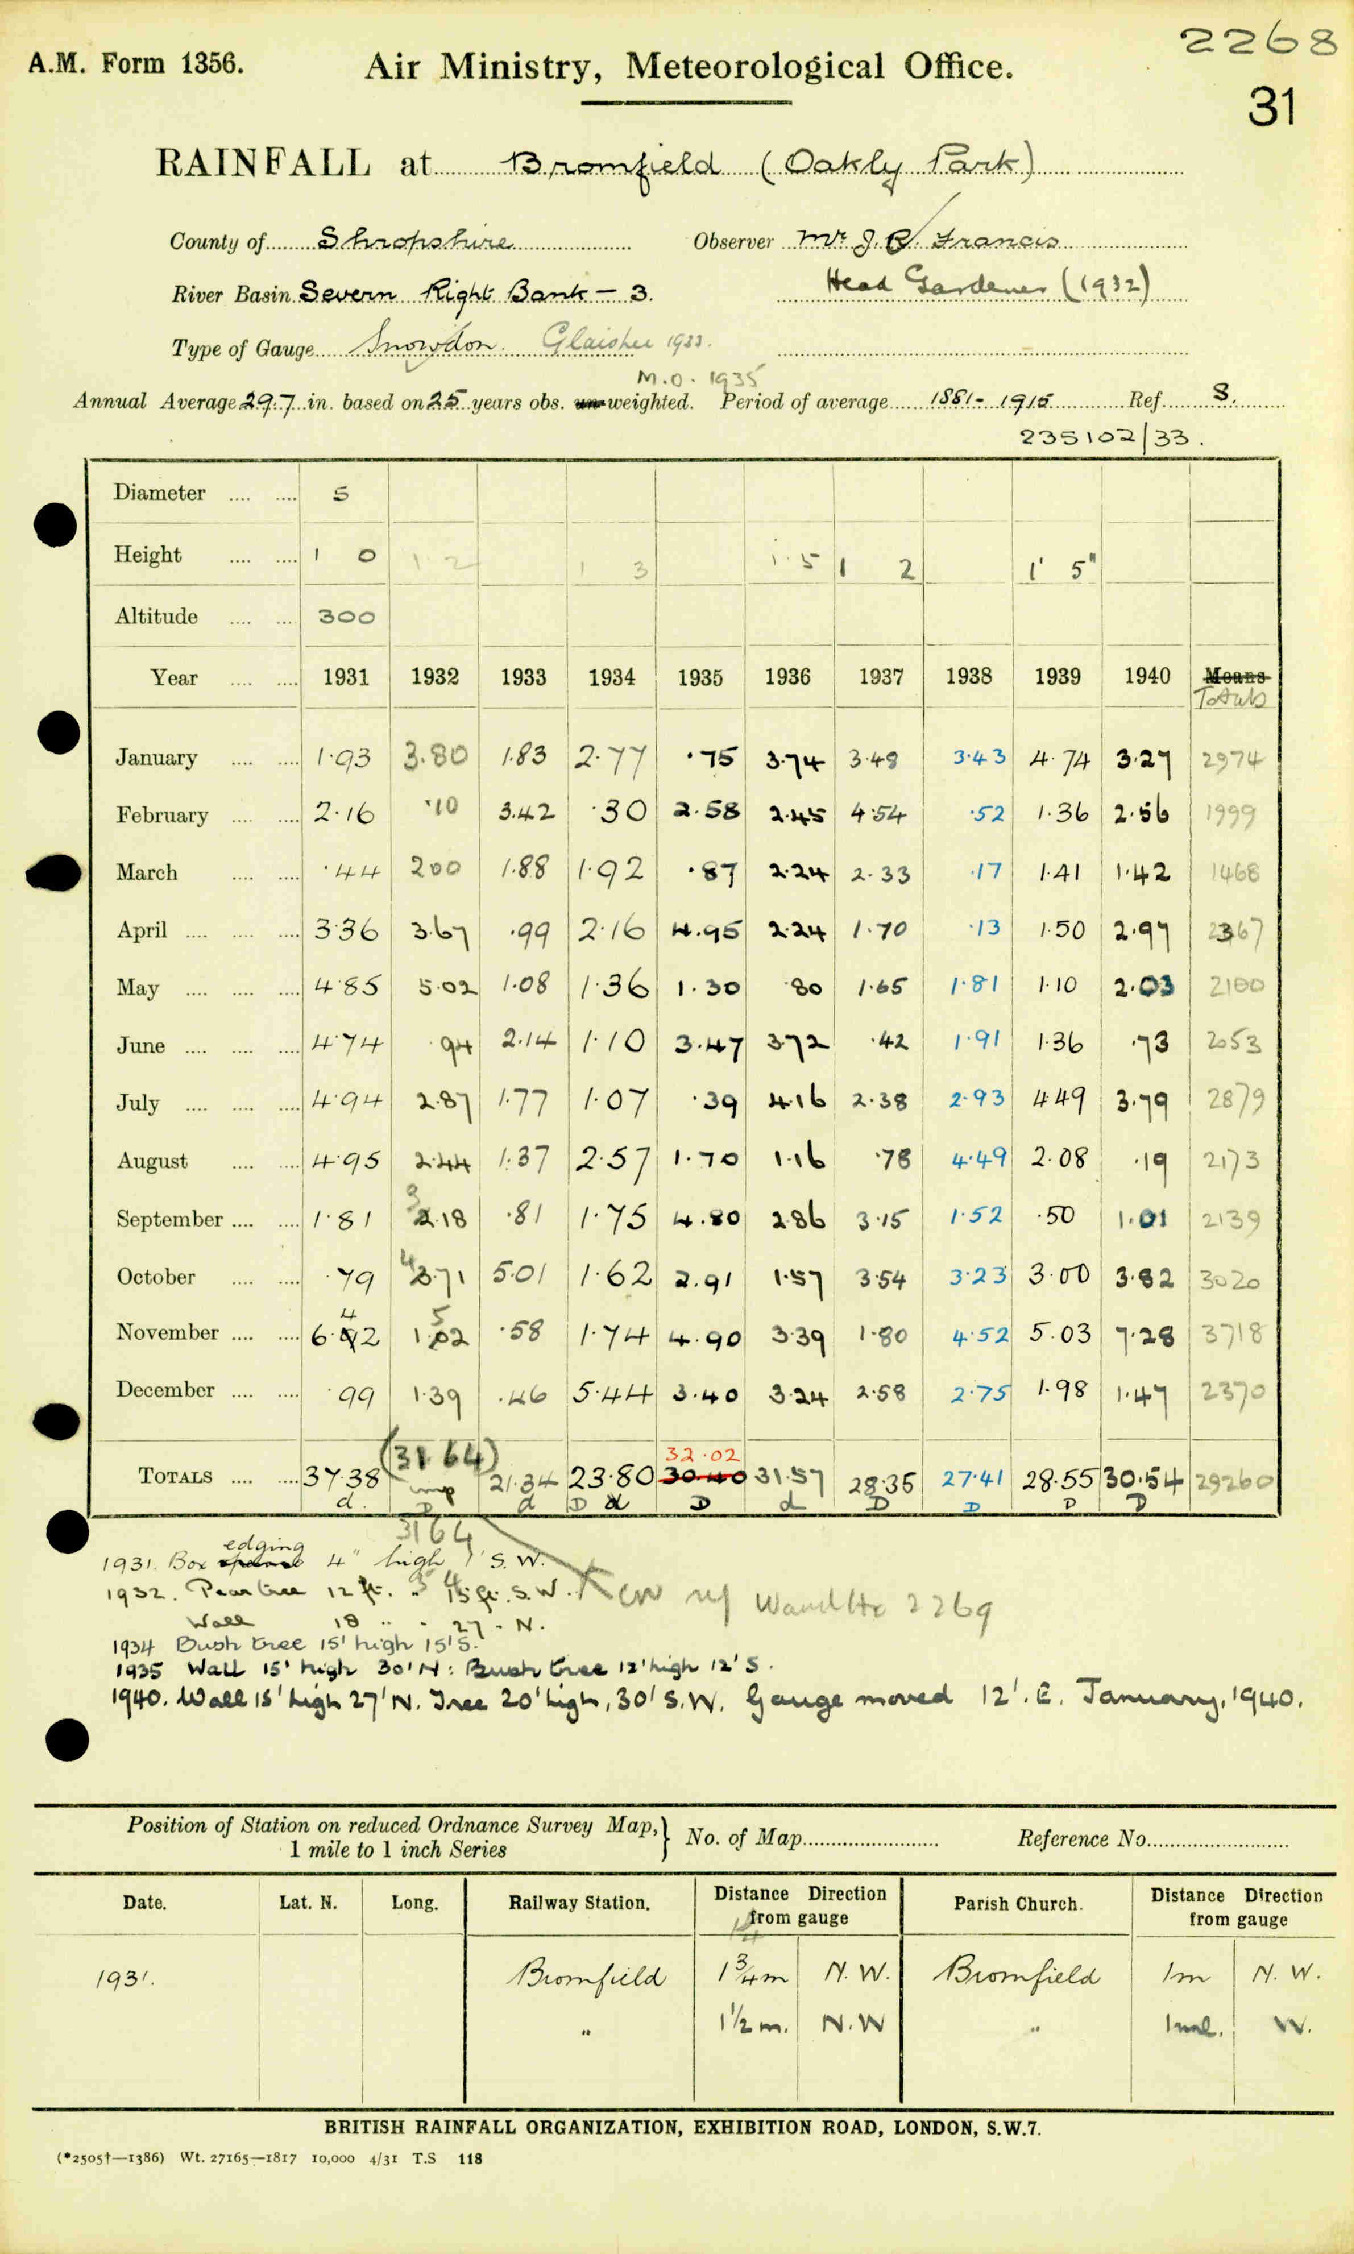 2268
A.M. Form 1356. Air Ministry, Meteorological Office.
31
RAINFALL at Bromfield (Oakly Park)
County of Shropshire Observer Mr J. R. Francis
River Basin Severn Right Bank - 3. Head Gardener (1932)
Type of Gauge Snowdon Glaisher 1933.
M.O. 1935
Annual Average 29.7 in. based on 25 years obs. weighted. Period of average 1881-1915 Ref. S.
235102/33.
Diameter .... .... 5
Height .... .... 1 0 1.2 1 3 1.5 1 2 1' 5"
Altitude .... .... 300
Year .... .... 1931 1932 1933 1934 1935 1936 1937 1938 1939 1940 Means
Totals
January .... .... 1.93 3.80 1.83 2.77 .75 3.74 3.48 3.43 4.74 3.27 2974
February .... .... 2.16 .10 3.42 .30 2.58 2.45 4.54 .52 1.36 2.56 1999
March .... .... .44 2.00 1.88 1.92 .87 2.24 2.33 .17 1.41 1.42 1468
April .... .... .... 3.36 3.67 .99 2.16 4.95 2.24 1.70 .13 1.50 2.97 2367
May .... .... .... 4.85 5.02 1.08 1.36 1.30 .80 1.65 1.81 1.10 2.03 2100
June .... .... .... 4.74 .94 2.14 1.10 3.47 3.72 .42 1.91 1.36 .73 2053
July .... .... .... 4.94 2.87 1.77 1.07 .39 4.16 2.38 2.93 4.49 3.79 2879
August .... .... 4.95 2.44 1.37 2.57 1.70 1.16 .78 4.49 2.08 .19 2173
September .... .... 1.81 3.18 .81 1.75 4.80 2.86 3.15 1.52 .50 1.01 2139
October .... .... .79 4.71 5.01 1.62 2.91 1.57 3.54 3.23 3.00 3.82 3020
November .... .... 6.42 1.52 .58 1.74 4.90 3.39 1.80 4.52 5.03 7.28 3718
December .... .... .99 1.39 .46 5.44 3.40 3.24 2.58 2.75 1.98 1.47 2370
(31.64) 32.02
TOTALS .... .... 37.38 imp 21.34 23.80 30.40 31.57 28.35 27.41 28.55 30.54 29260
d. D d D d D d D D D D
3164
1931. Box edging 4" high 1' S.W.
1932. Pear tree 12 ft. " 15 ft. S.W.
Wall 18 " " 27 - N.
2269
1934 Bush tree 15' high 15' S.
1935 Wall 15' high 30' N: Bush tree 12' high 12' S.
1940. Wall 15' high 27' N. Tree 20' high, 30' S.W. Gauge moved 12'. E. January, 1940.
Position of Station on reduced Ordnance Survey Map, } No. of Map Reference No.
1 mile to 1 inch Series
Date. Lat. N. Long. Railway Station. Distance Direction from gauge Parish Church. Distance Direction from gauge
1931. Bromfield 1 3/4 m N.W. Bromfield 1m N.W.
" 1 1/2 m. N.W " 1 ml. W.
BRITISH RAINFALL ORGANIZATION, EXHIBITION ROAD, LONDON, S.W.7.
(*2505†—1386) Wt. 27165—1817 10,000 4/31 T.S 118